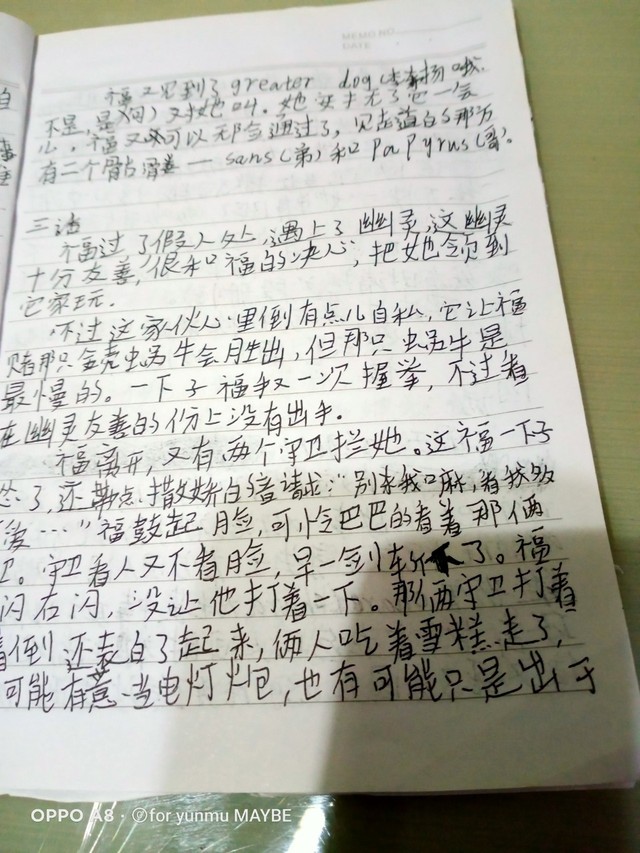 MEMO NO.
DATE
福又见到了greater dog(
不是,是狗)又找她叫。她
心,福又可以无命通过了,见走道的那方
有二个骷髅 — sans(弟)和papyrus(哥)。
三话
福过了假人处,遇上了幽灵,这幽灵
十分友善,很和福的决心,把她领到
它家玩.
不过这家伙心里倒有点儿自私,它让福
赌那只金壳蜗牛会胜出,但那只蜗牛是
最慢的。一下子福手又一次握拳,不过看
在幽灵友善的份上没有出手。
福离开,又有两个守卫拦她。这福一下子
了,还带点撒娇的音读:"别来我麻,看我多
…"福鼓起脸,可怜巴巴的看着那俩
卫。守卫看人又不看脸,早一剑斩了。福
闪右闪,没让他打着一下。那俩守卫打着
着倒还表白了起来,俩人吃着雪糕走了,
可能有意当电灯泡,也有可能只是出于
OPPO A8 · ⓒfor yunmu MAYBE